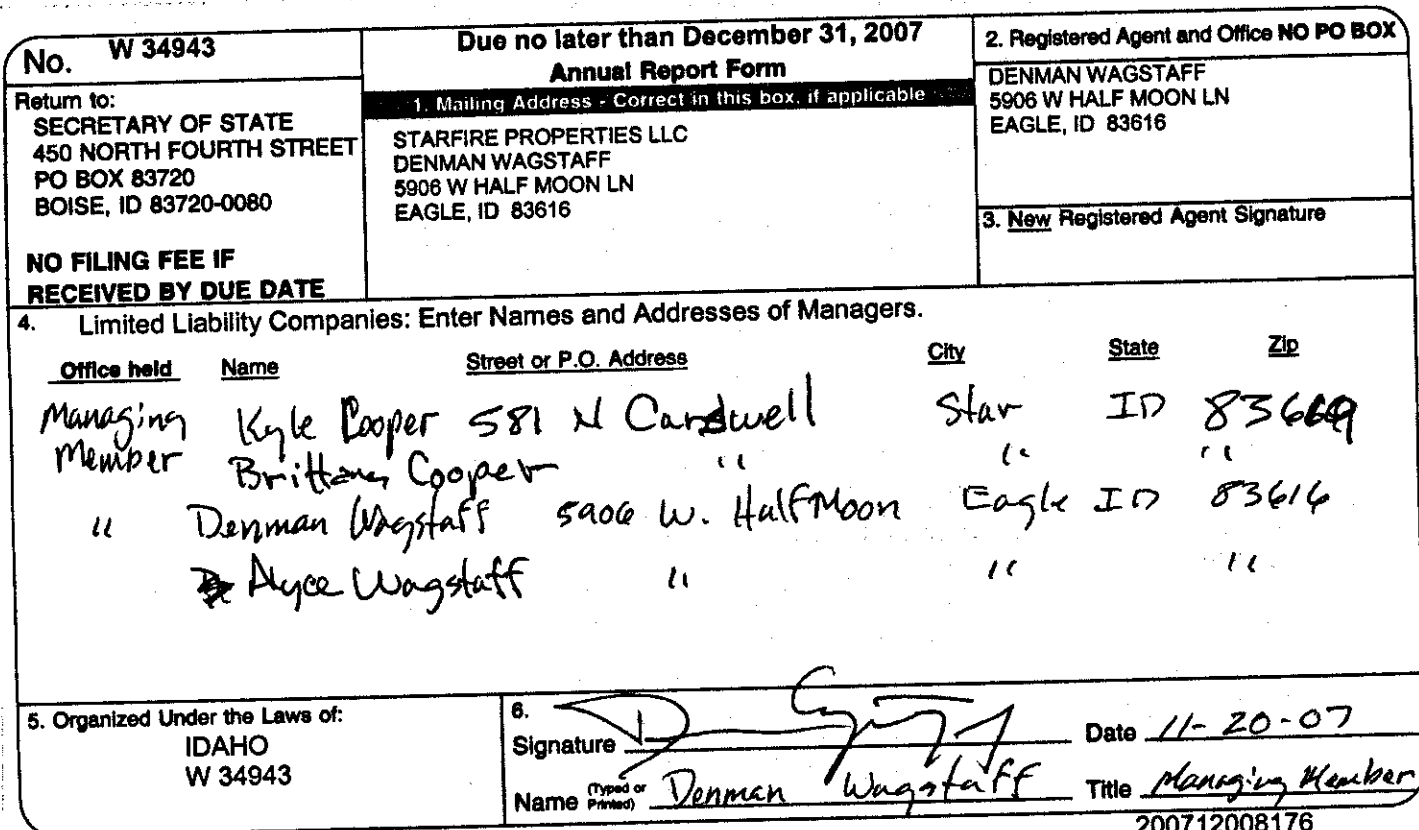 No. W 34943
Return to:
SECRETARY OF STATE
450 NORTH FOURTH STREET
PO BOX 83720
BOISE, ID 83720-0080
NO FILING FEE IF
RECEIVED BY DUE DATE
Due no later than December 31, 2007
Annual Report Form
1. Mailing Address - Correct in this box, if applicable
STARFIRE PROPERTIES LLC
DENMAN WAGSTAFF
5906 W HALF MOON LN
EAGLE, ID 83616
2. Registered Agent and Office NO PO BOX
DENMAN WAGSTAFF
5906 W HALF MOON LN
EAGLE, ID 83616
3. New Registered Agent Signature
4. Limited Liability Companies: Enter Names and Addresses of Managers.
Office held Name Street or P.O. Address City State Zip
Managing Kyle Cooper 581 N Cardwell Star ID 83669
Member Brittany Cooper " " "
" Denman Wagstaff 5906 W. Half Moon Eagle ID 83616
Alyce Wagstaff " " "
5. Organized Under the Laws of:
IDAHO
W 34943
6.
Signature Date 11-20-07
Name (Typed or Printed) Denman Wagstaff Title Managing Member
200712008176